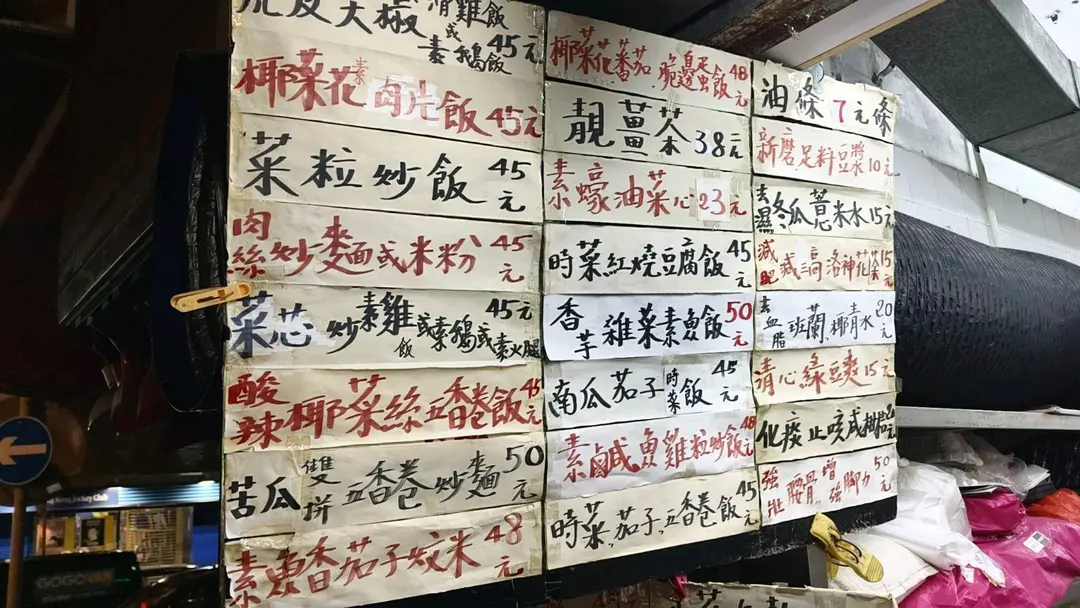 大椒滑雞飯
或素鵝飯45元
椰菜花素肉片飯45元
菜粒炒飯45元
肉絲炒麵或米粉45元
菜芯炒素雞飯或素鵝或素火腿45元
酸辣椰菜絲五香卷飯45
苦瓜雙拼五香卷炒麵50元
素魚香茄子炆米48元
椰菜花蕃茄脆邊蛋飯48元
靚薑茶38元
素蠔油菜心23元
時菜紅燒豆腐飯45元
香芋雜菜素魚飯50元
南瓜茄子時菜飯45元
素鹹魚雞粒炒飯48元
時菜茄子五香卷飯45元
油條7元條
新磨足料豆漿10元
去濕冬瓜薏米水15元
減肥減三高洛神花茶15元
去血脂班蘭椰青水20元
清心綠豆爽15元
化痰止咳咸柑桔20元
強壯腰骨增強腳力50元
Jockey Club
GOGOVAN